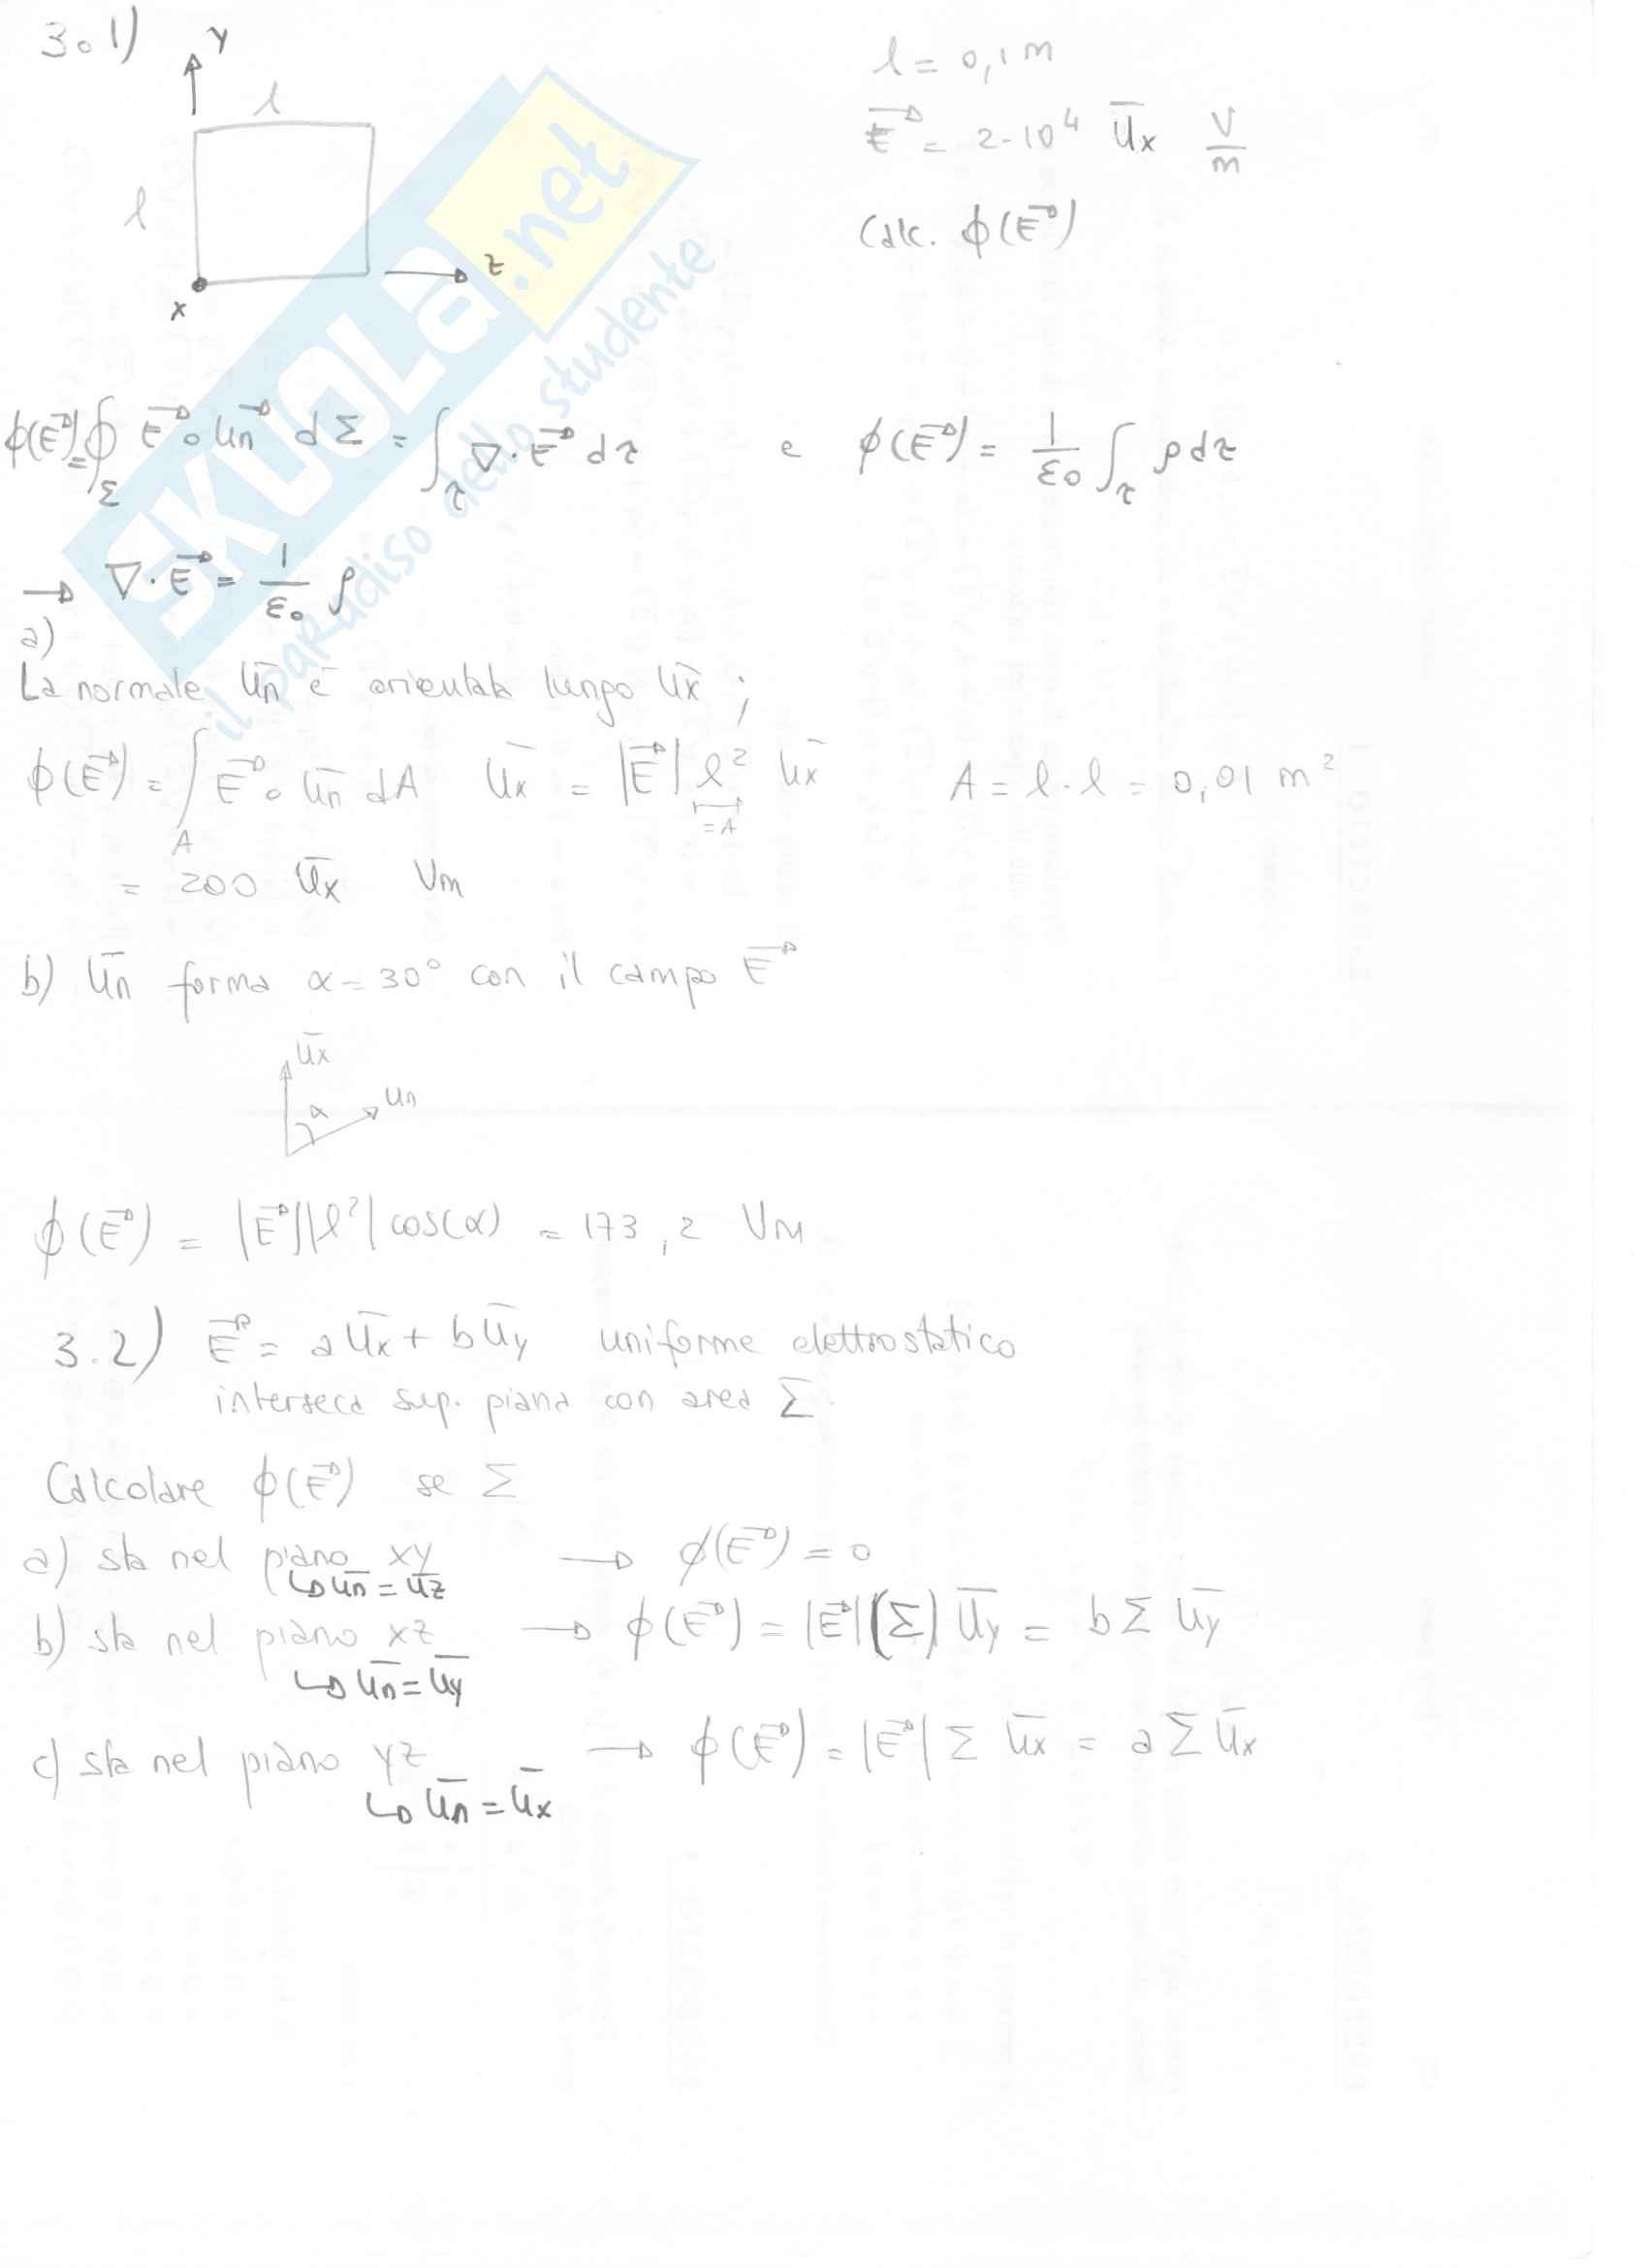 3.1)
y
l
l
z
x
l = 0,1 m
E⃗ = 2·10⁴ ūx V/m
Calc. ϕ(E⃗)
SKUOLA.net
il paradiso dello studente
ϕ(E⃗) = ∮_Σ E⃗ ∘ un⃗ dΣ = ∫_τ ∇·E⃗ dτ e ϕ(E⃗) = 1/ε₀ ∫_τ ρ dτ
→ ∇·E⃗ = 1/ε₀ ρ
a)
La normale ūn è orientata lungo ūx ;
ϕ(E⃗) = ∫_A E⃗ ∘ ūn dA ūx = |E⃗| l² ūx A = l·l = 0,01 m²
=A
= 200 ūx Vm
b) ūn forma α = 30° con il campo E⃗
ūx
α
un
ϕ(E⃗) = |E⃗||l²| cos(α) = 173,2 Vm
3.2) E⃗ = a ūx + b ūy uniforme elettrostatico
interseca sup. piana con area Σ.
Calcolare ϕ(E⃗) se Σ
a) sta nel piano xy → ϕ(E⃗) = 0
↳ ūn = ūz
b) sta nel piano xz → ϕ(E⃗) = |E⃗|(Σ) ūy = bΣ ūy
↳ ūn = ūy
c) sta nel piano yz → ϕ(E⃗) = |E⃗| Σ ūx = aΣ ūx
↳ ūn = ūx